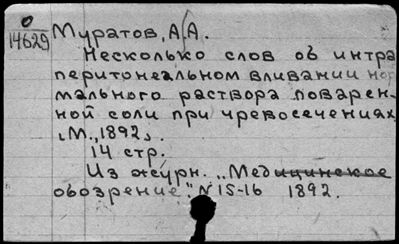 0
14629
Муратов, А.А.
Несколько слов об интра
перитонеальном вливании нор
мального раствора поварен-
ной соли при чревосечениях
М., 1892.
14 стр.
Из журн. „Медицинское
обозрение." №15-16 1892.